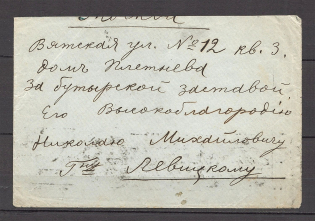 Вятская ул. № 12 кв. 3.
домъ Плетнева
За бутырской заставой
Его Высокоблагородію
Николаю Михайловичу
Гну Левицкому